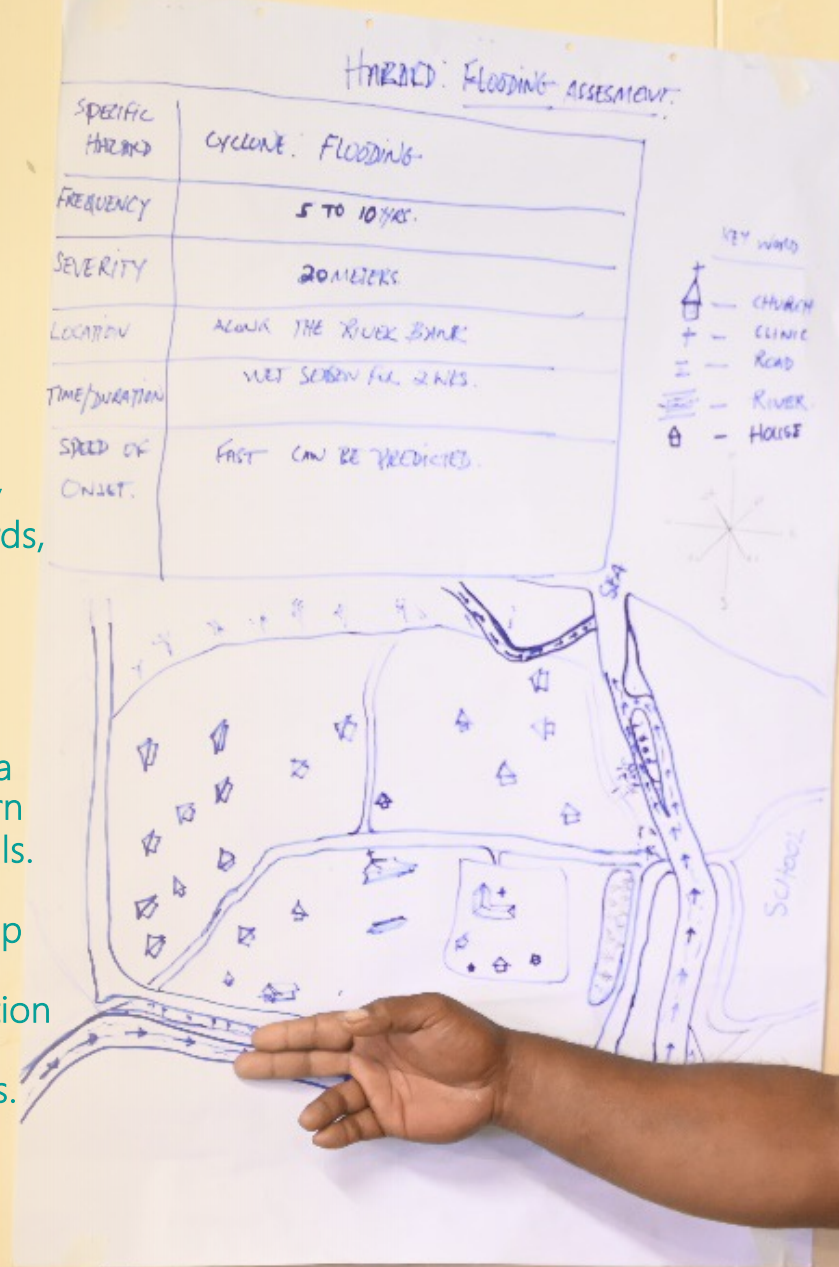 HAZARD: FLOODING ASSESMENT.
SPECIFIC
HAZARD
CYCLONE: FLOODING
FREQUENCY
5 TO 10 YRS.
SEVERITY
20 METERS
LOCATION
ALONG THE RIVER BANK
TIME/DURATION
WET SEASON FOR 2 WKS.
SPEED OF
ONSET.
FAST CAN BE PREDICTED.
KEY WORD
— CHURCH
— CLINIC
— ROAD
— RIVER
— HOUSE
S
SEA
SCHOOL
rds,
a
rn
ls.
p
tion
s.